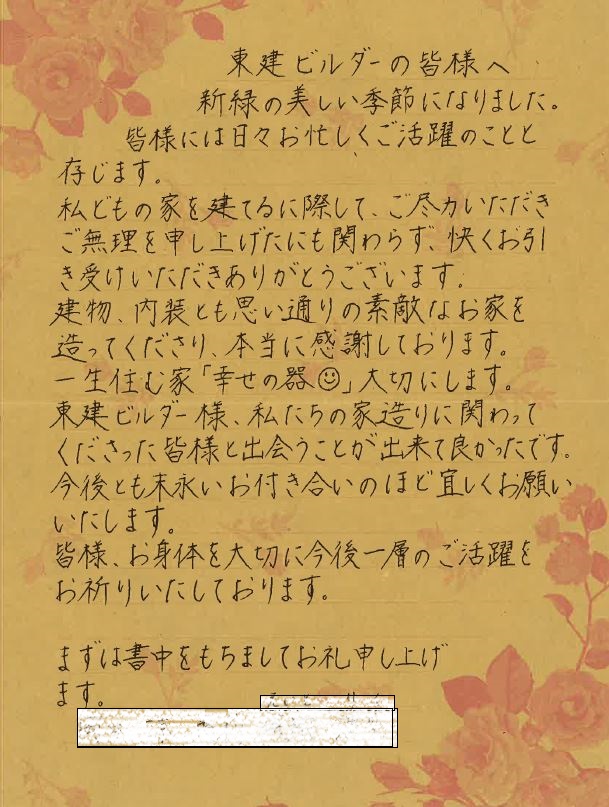 東建ビルダーの皆様へ
新緑の美しい季節になりました。
皆様には日々お忙しくご活躍のことと
存じます。
私どもの家を建てるに際して、ご尽力いただき
ご無理を申し上げたにも関わらず、快くお引
き受けいただきありがとうございます。
建物、内装とも思い通りの素敵なお家を
造ってくださり、本当に感謝しております。
一生住む家「幸せの器☺」大切にします。
東建ビルダー様、私たちの家造りに関わって
くださった皆様と出会うことが出来て良かったです。
今後とも末永いお付き合いのほど宜しくお願い
いたします。
皆様、お身体を大切に今後一層のご活躍を
お祈りいたしております。
まずは書中をもちましてお礼申し上げ
ます。